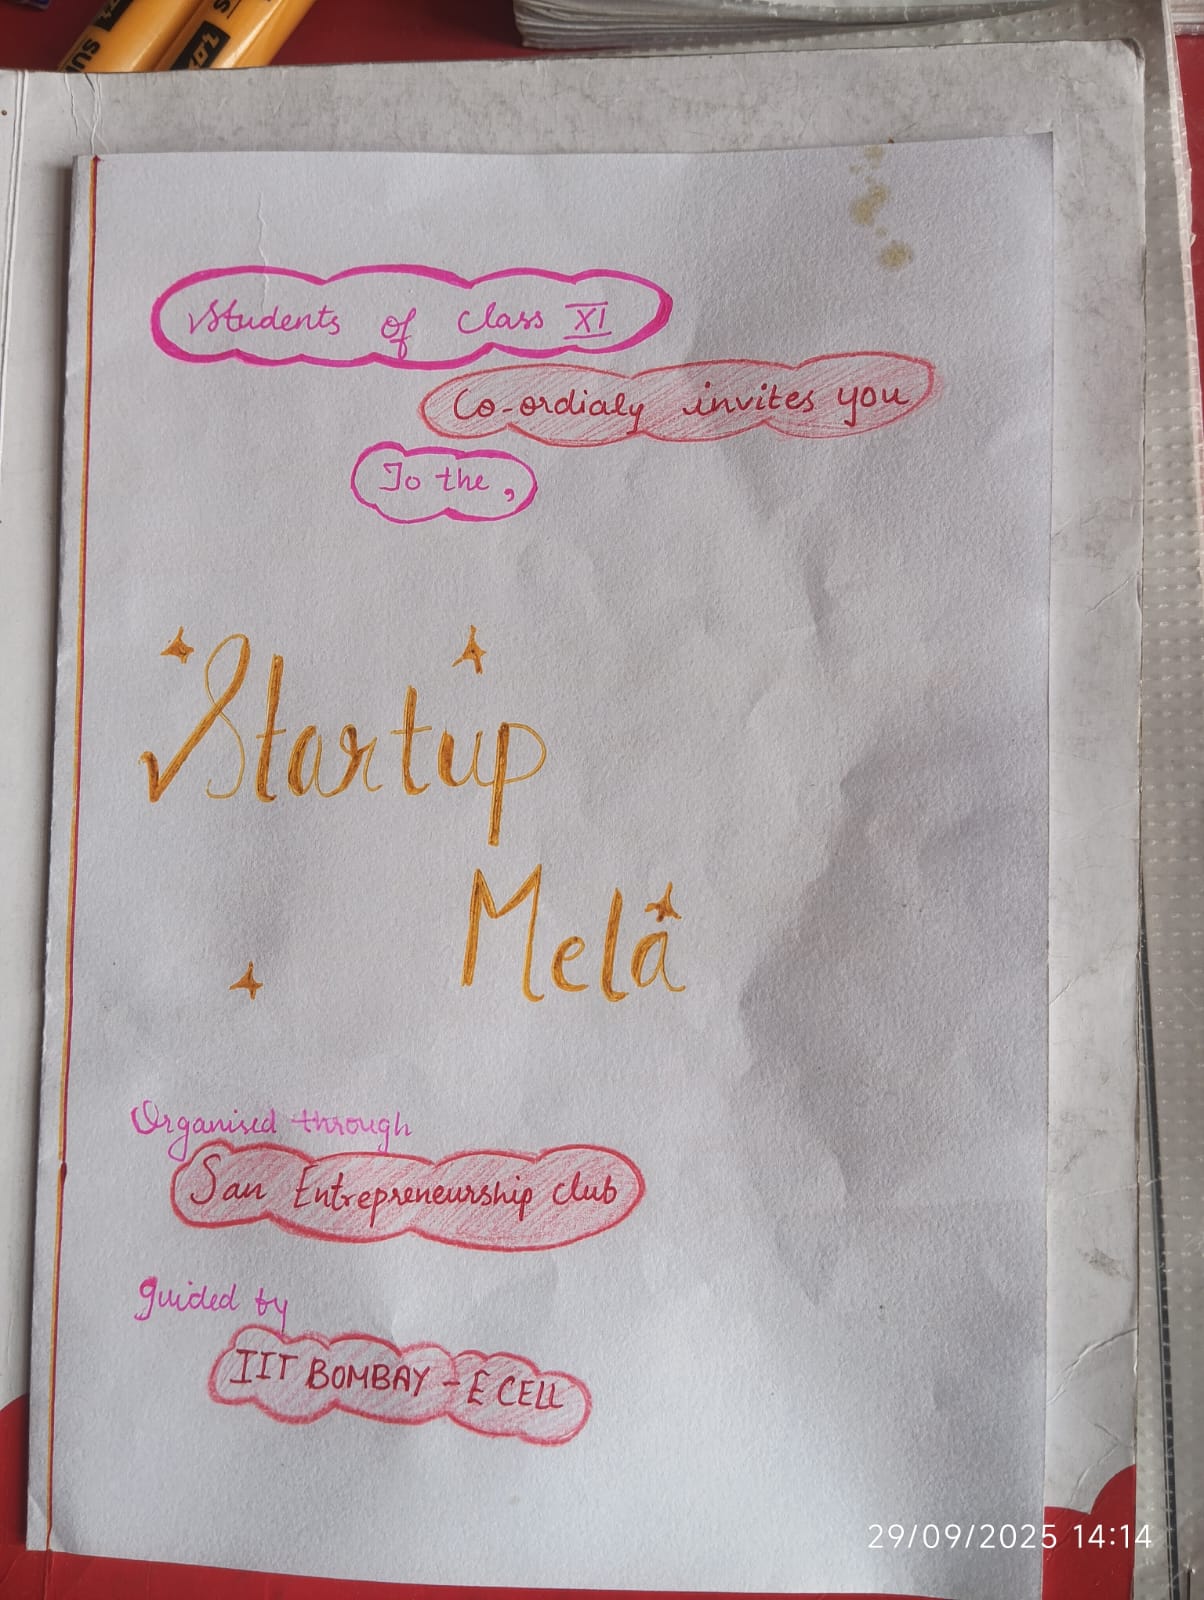 Students of Class XI
Co-ordialy invites you
To the ,
Startup
Mela
Organised through
San Entrepreneurship club
guided by
IIT BOMBAY - E CELL
29/09/2025 14:14